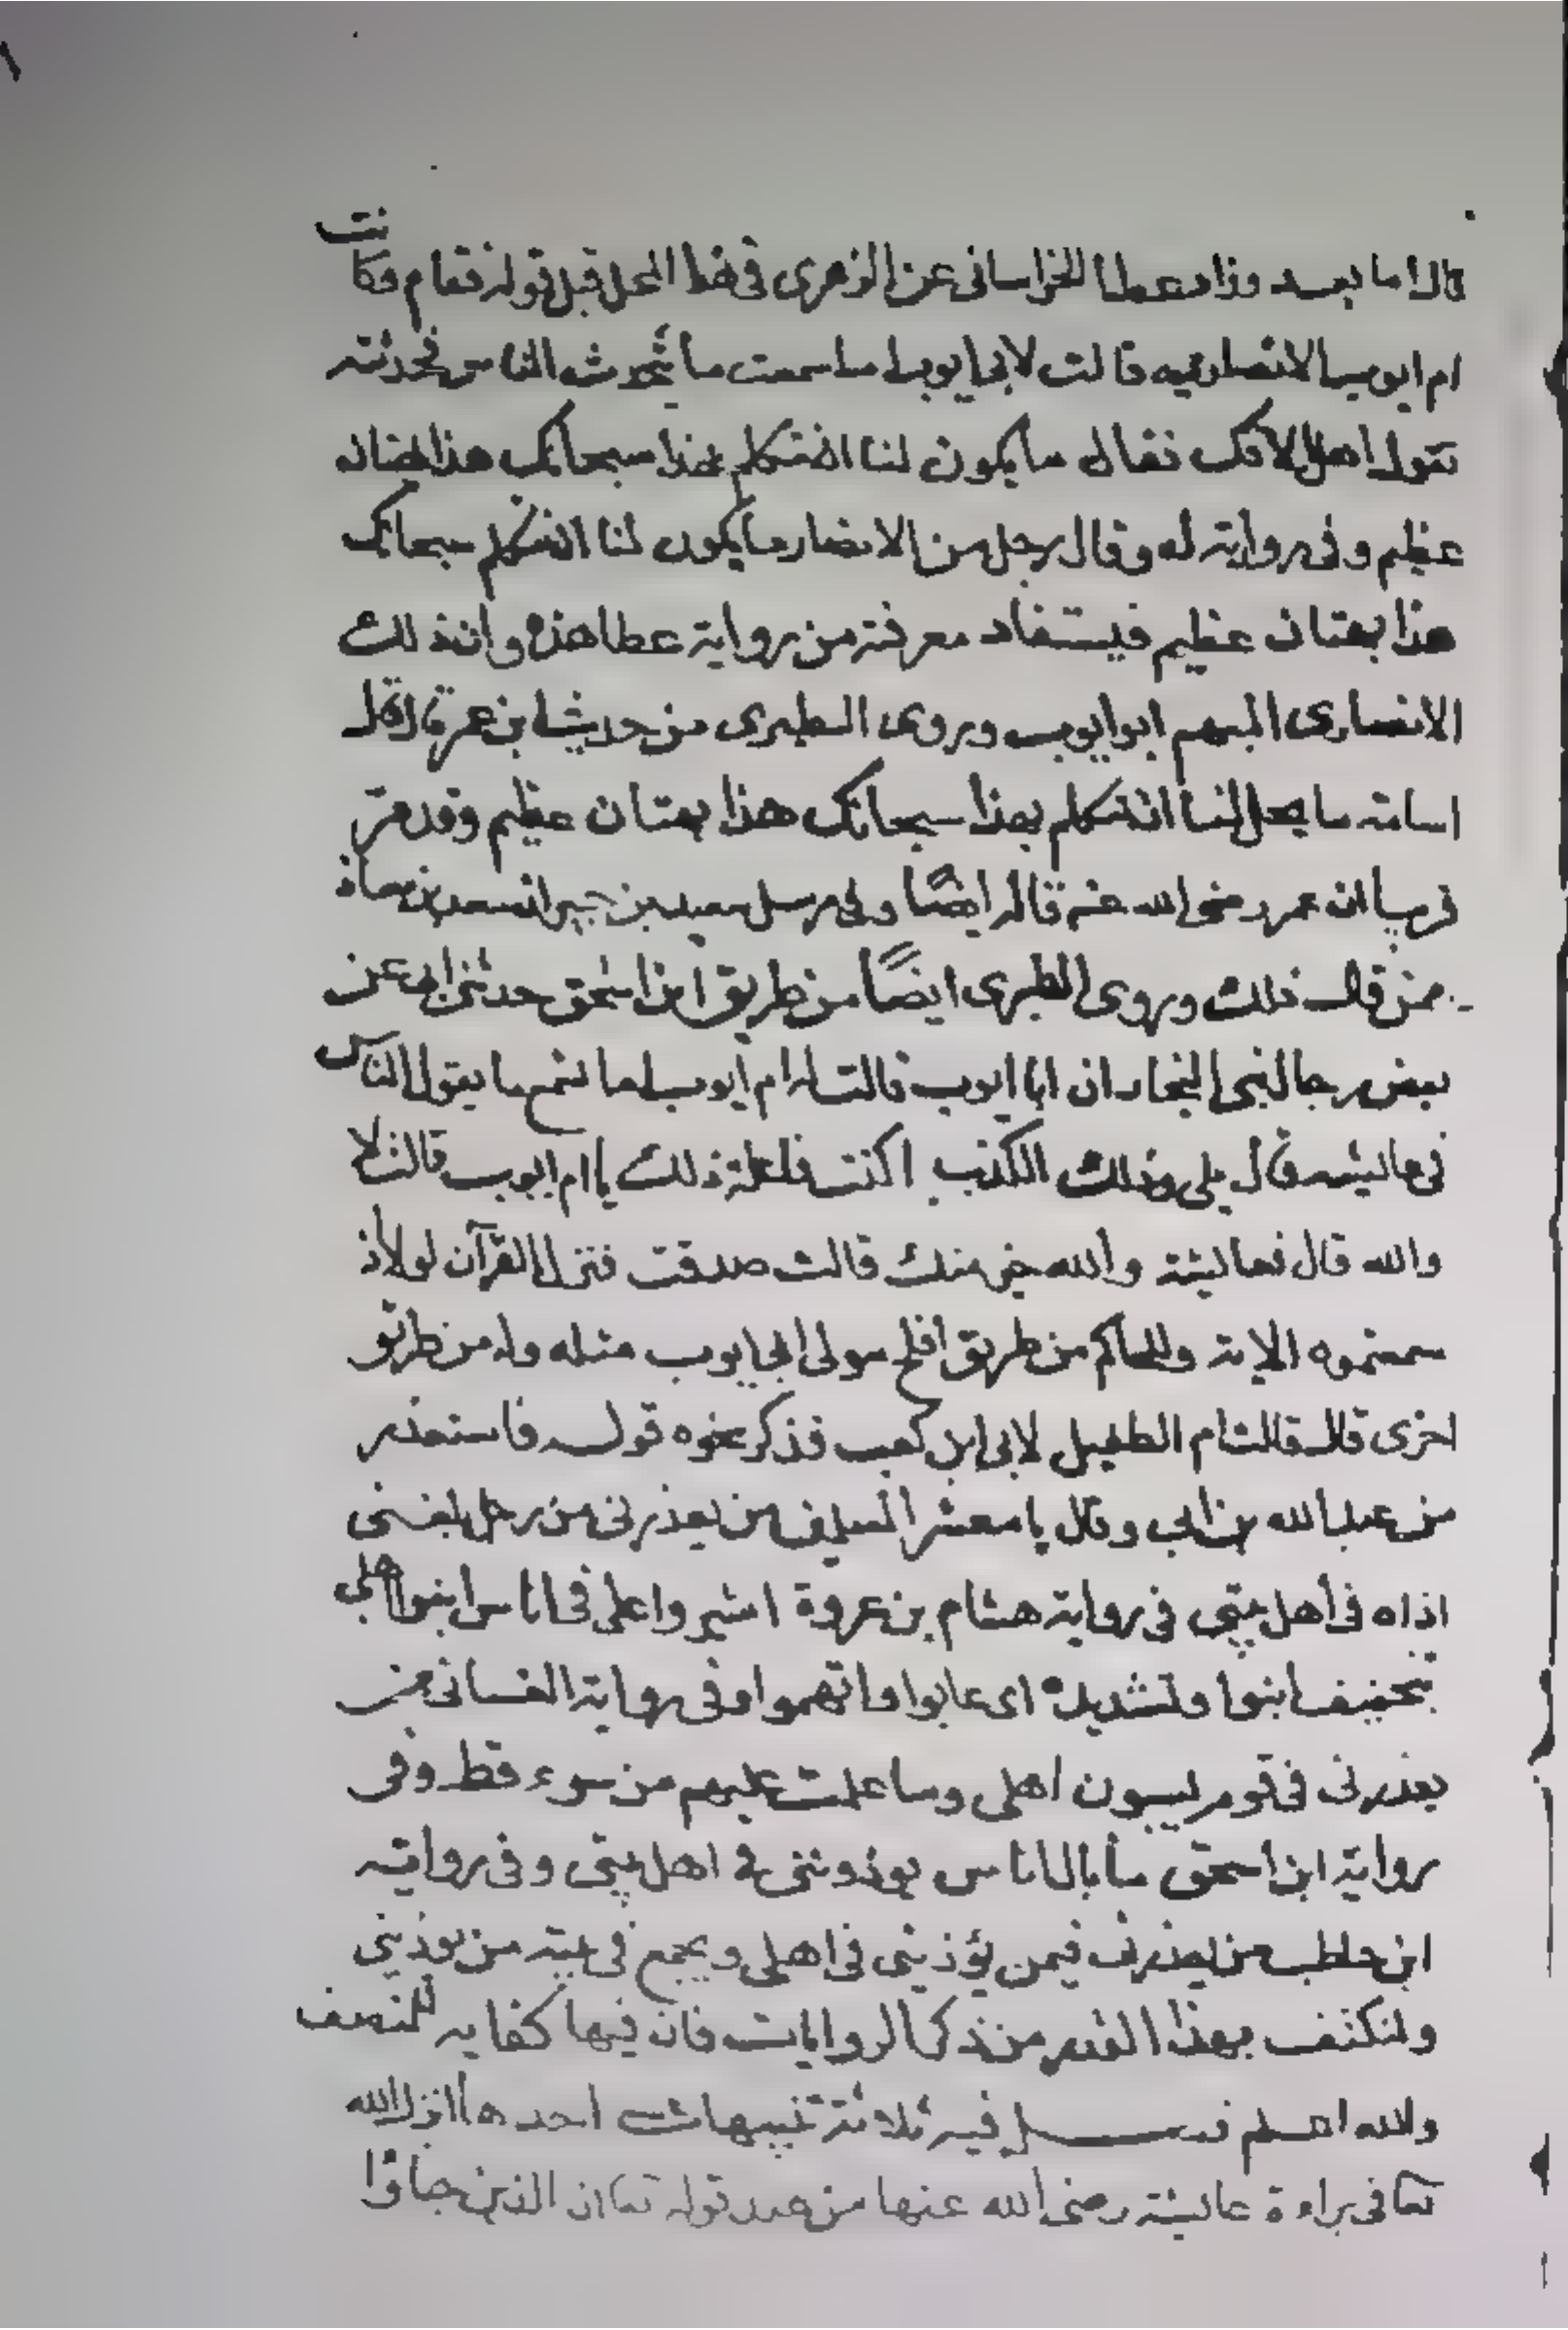 قال اما بعد وزاد عطا الخراسانى عن الزهرى فى هذا المحل قبل قوله فقام وكانت
ام ايوب الانصاريه قالت لابى ايوب اما سمعت ما يتحدث الناس فحدثته
بقول اهل الافك فقال ما يكون لنا ان نتكلم بهذا سبحانك هذا بهتان
عظيم وفى رواية له وقال رجل من الانصار ما يكون لنا ان نتكلم سبحانك
هذا بهتان عظيم فيستفاد معرفته من رواية عطا هذه وان ذلك
الانصارى المبهم ابو ايوب وروى الطبرى من حديث ابن عمر قال قال
اسامة ما يحل لنا ان نتكلم بهذا سبحانك هذا بهتان عظيم وقد مر
قريبا ان عمر رضى الله عنه قاله ايضًا وفى مرسل سعيد بن جبير ان سعد بن معاذ
ممن قال ذلك وروى الطبرى ايضًا من طريق ابن اسحق حدثنى ابى عن
بعض رجال بنى النجار ان ابا ايوب قالت له ام ايوب اما تسمع ما يقول الناس
فى عائيشه قال بلى وذلك الكذب اكنت فاعلة ذلك يا ام ايوب قالت لا
والله قال فعائيشة والله خير منك قالت صدقت فنزل القرآن لولا اذ
سمعتموه الاية وللحاكم من طريق افلح مولى ابى ايوب مثله وله من طريق
اخرى قال قالت ام الطفيل لابى ابن كعب فذكر نحوه قوله فاستعذر
من عبد الله بن ابى وقال يا معشر المسلمين من يعذرنى من رجل بلغنى
اذاه فى أهل بيتى فى رواية هشام بن عروة اشيروا على فى اناس ابنوا اهلى
بتخفيف ابنوا وتشديده اى عابوا واتهموا وفى رواية الغسانى من
يعذرنى فى قوم يسبون اهلى وما علمت عليهم من سوء قط وفى
رواية ابن اسحق ما بال اناس يوذوننى فى اهل بيتى وفى رواية
ابن حاطب من يعذرنى فيمن يؤذينى فى اهلى ويجمع فى بيته من يوذينى
ولنكتف بهذا القدر من ذكر الروايات فان فيها كفايه للمنصف
والله اعلم فصل فيه ثلاثة تنبيهات احدها انزل الله
تعا فى براءة عائيشة رضى الله عنها من عند قوله تعا ان الذين جاؤا